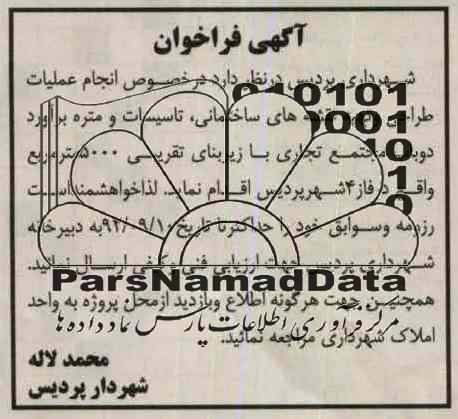 آگهی فراخوان
شهرداری پردیس درنظر دارد درخصوص انجام عملیات
طراحی نقشه های ساختمانی، تاسیسات و متره برآورد
مجتمع تجاری با زیربنای تقریبی ۵۰۰۰ مترمربع
واقع درفاز۴شهرپردیس اقدام نماید. لذاخواهشمنداست
رزومه وسوابق خود را حداکثرتا تاریخ ۹۲/۰۹/۱۰به دبیرخانه
شهرداری پردیس جهت ارزیابی فنی وکیفی ارسال نمائید.
همچنین جهت هرگونه اطلاع وبازدید ازمحل پروژه به واحد
املاک شهرداری مراجعه نمائید.
محمد لاله
شهردار پردیس
010101
0001
10
1
0
ParsNamadData
مرکز فرآوری اطلاعات پارس نماد داده ها